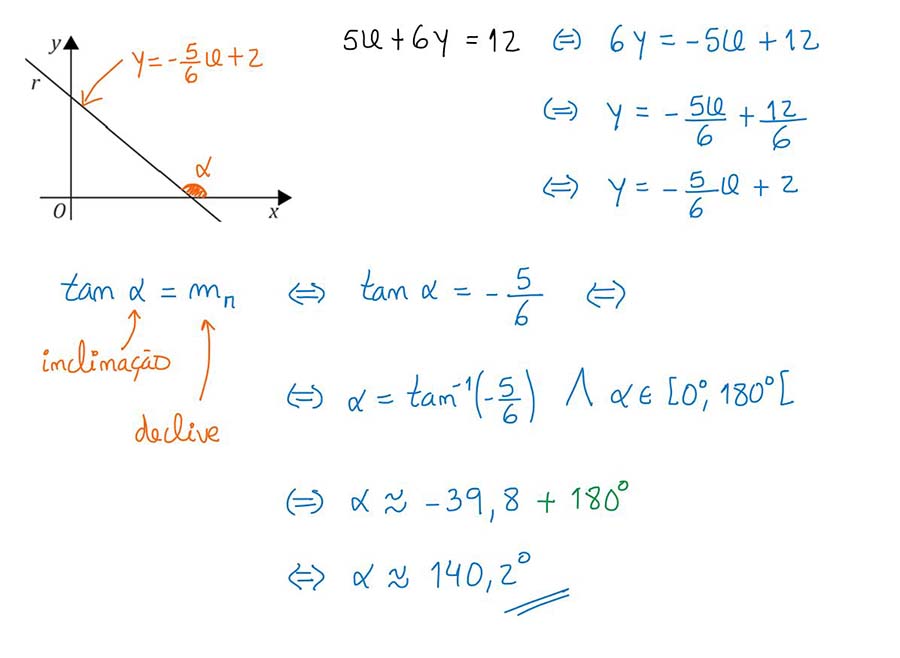 y
y = -5/6 x + 2
r
α
O
x
5x + 6y = 12 ⇔ 6y = -5x + 12
⇔ y = -5x/6 + 12/6
⇔ y = -5/6 x + 2
tan α = mᵣ ⇔ tan α = -5/6 ⇔
inclinação
declive
⇔ α = tan⁻¹(-5/6) ∧ α ∈ [0°, 180°[
⇔ α ≈ -39,8 + 180°
⇔ α ≈ 140,2°